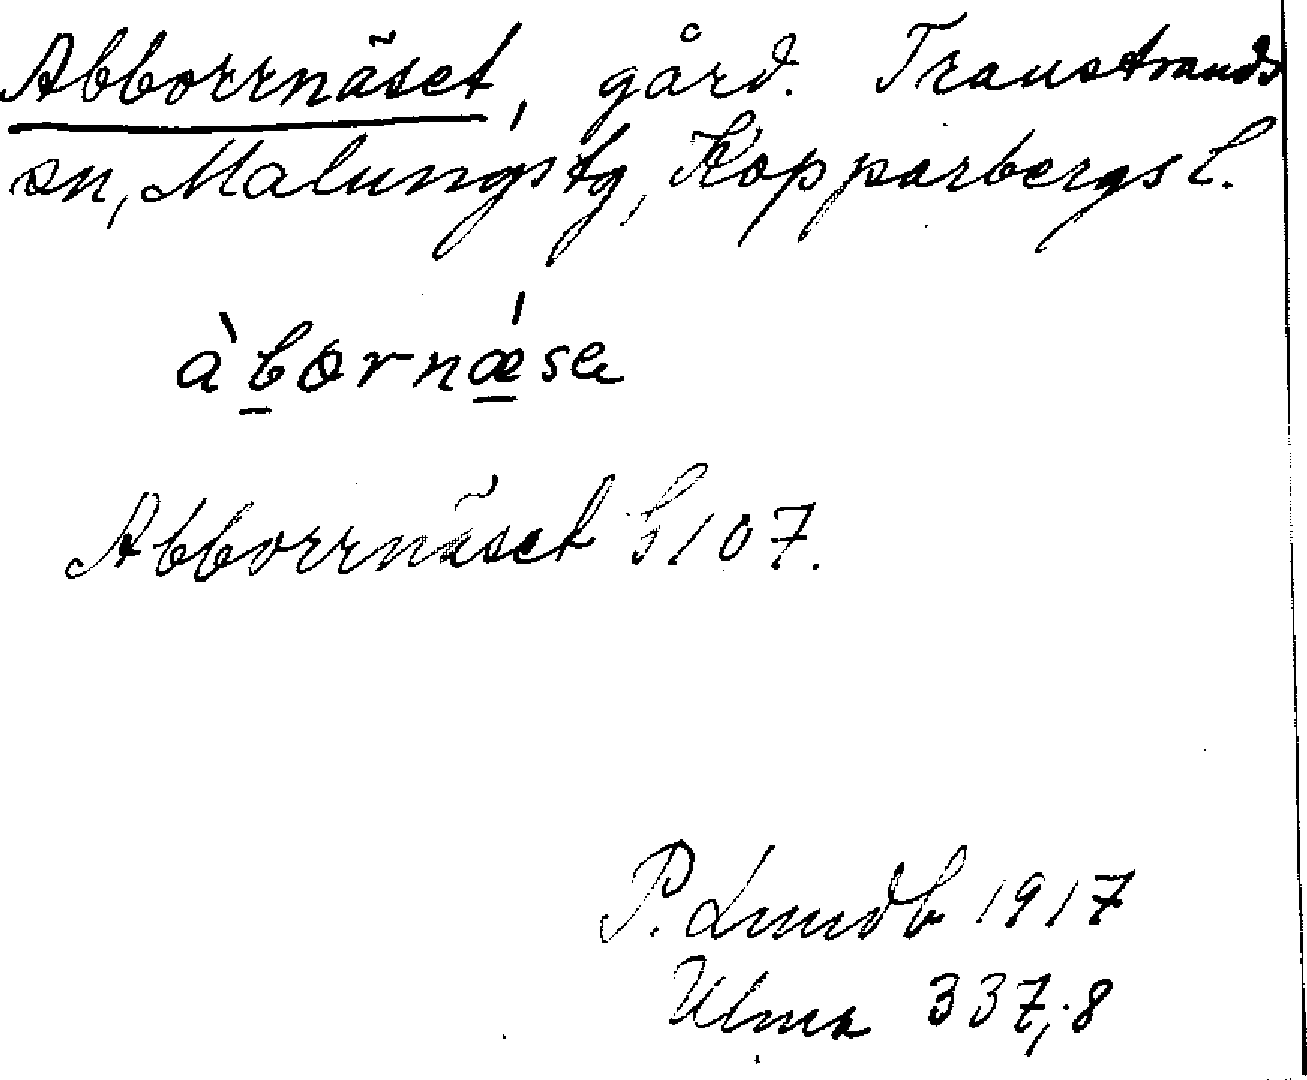 Abborrnäset, gård. Transtrands
sn, Malungs tg, Kopparbergs l.
àbornǽsе
Abborrnäset S 107.
P. Lundb 1917
Ulma 337:8